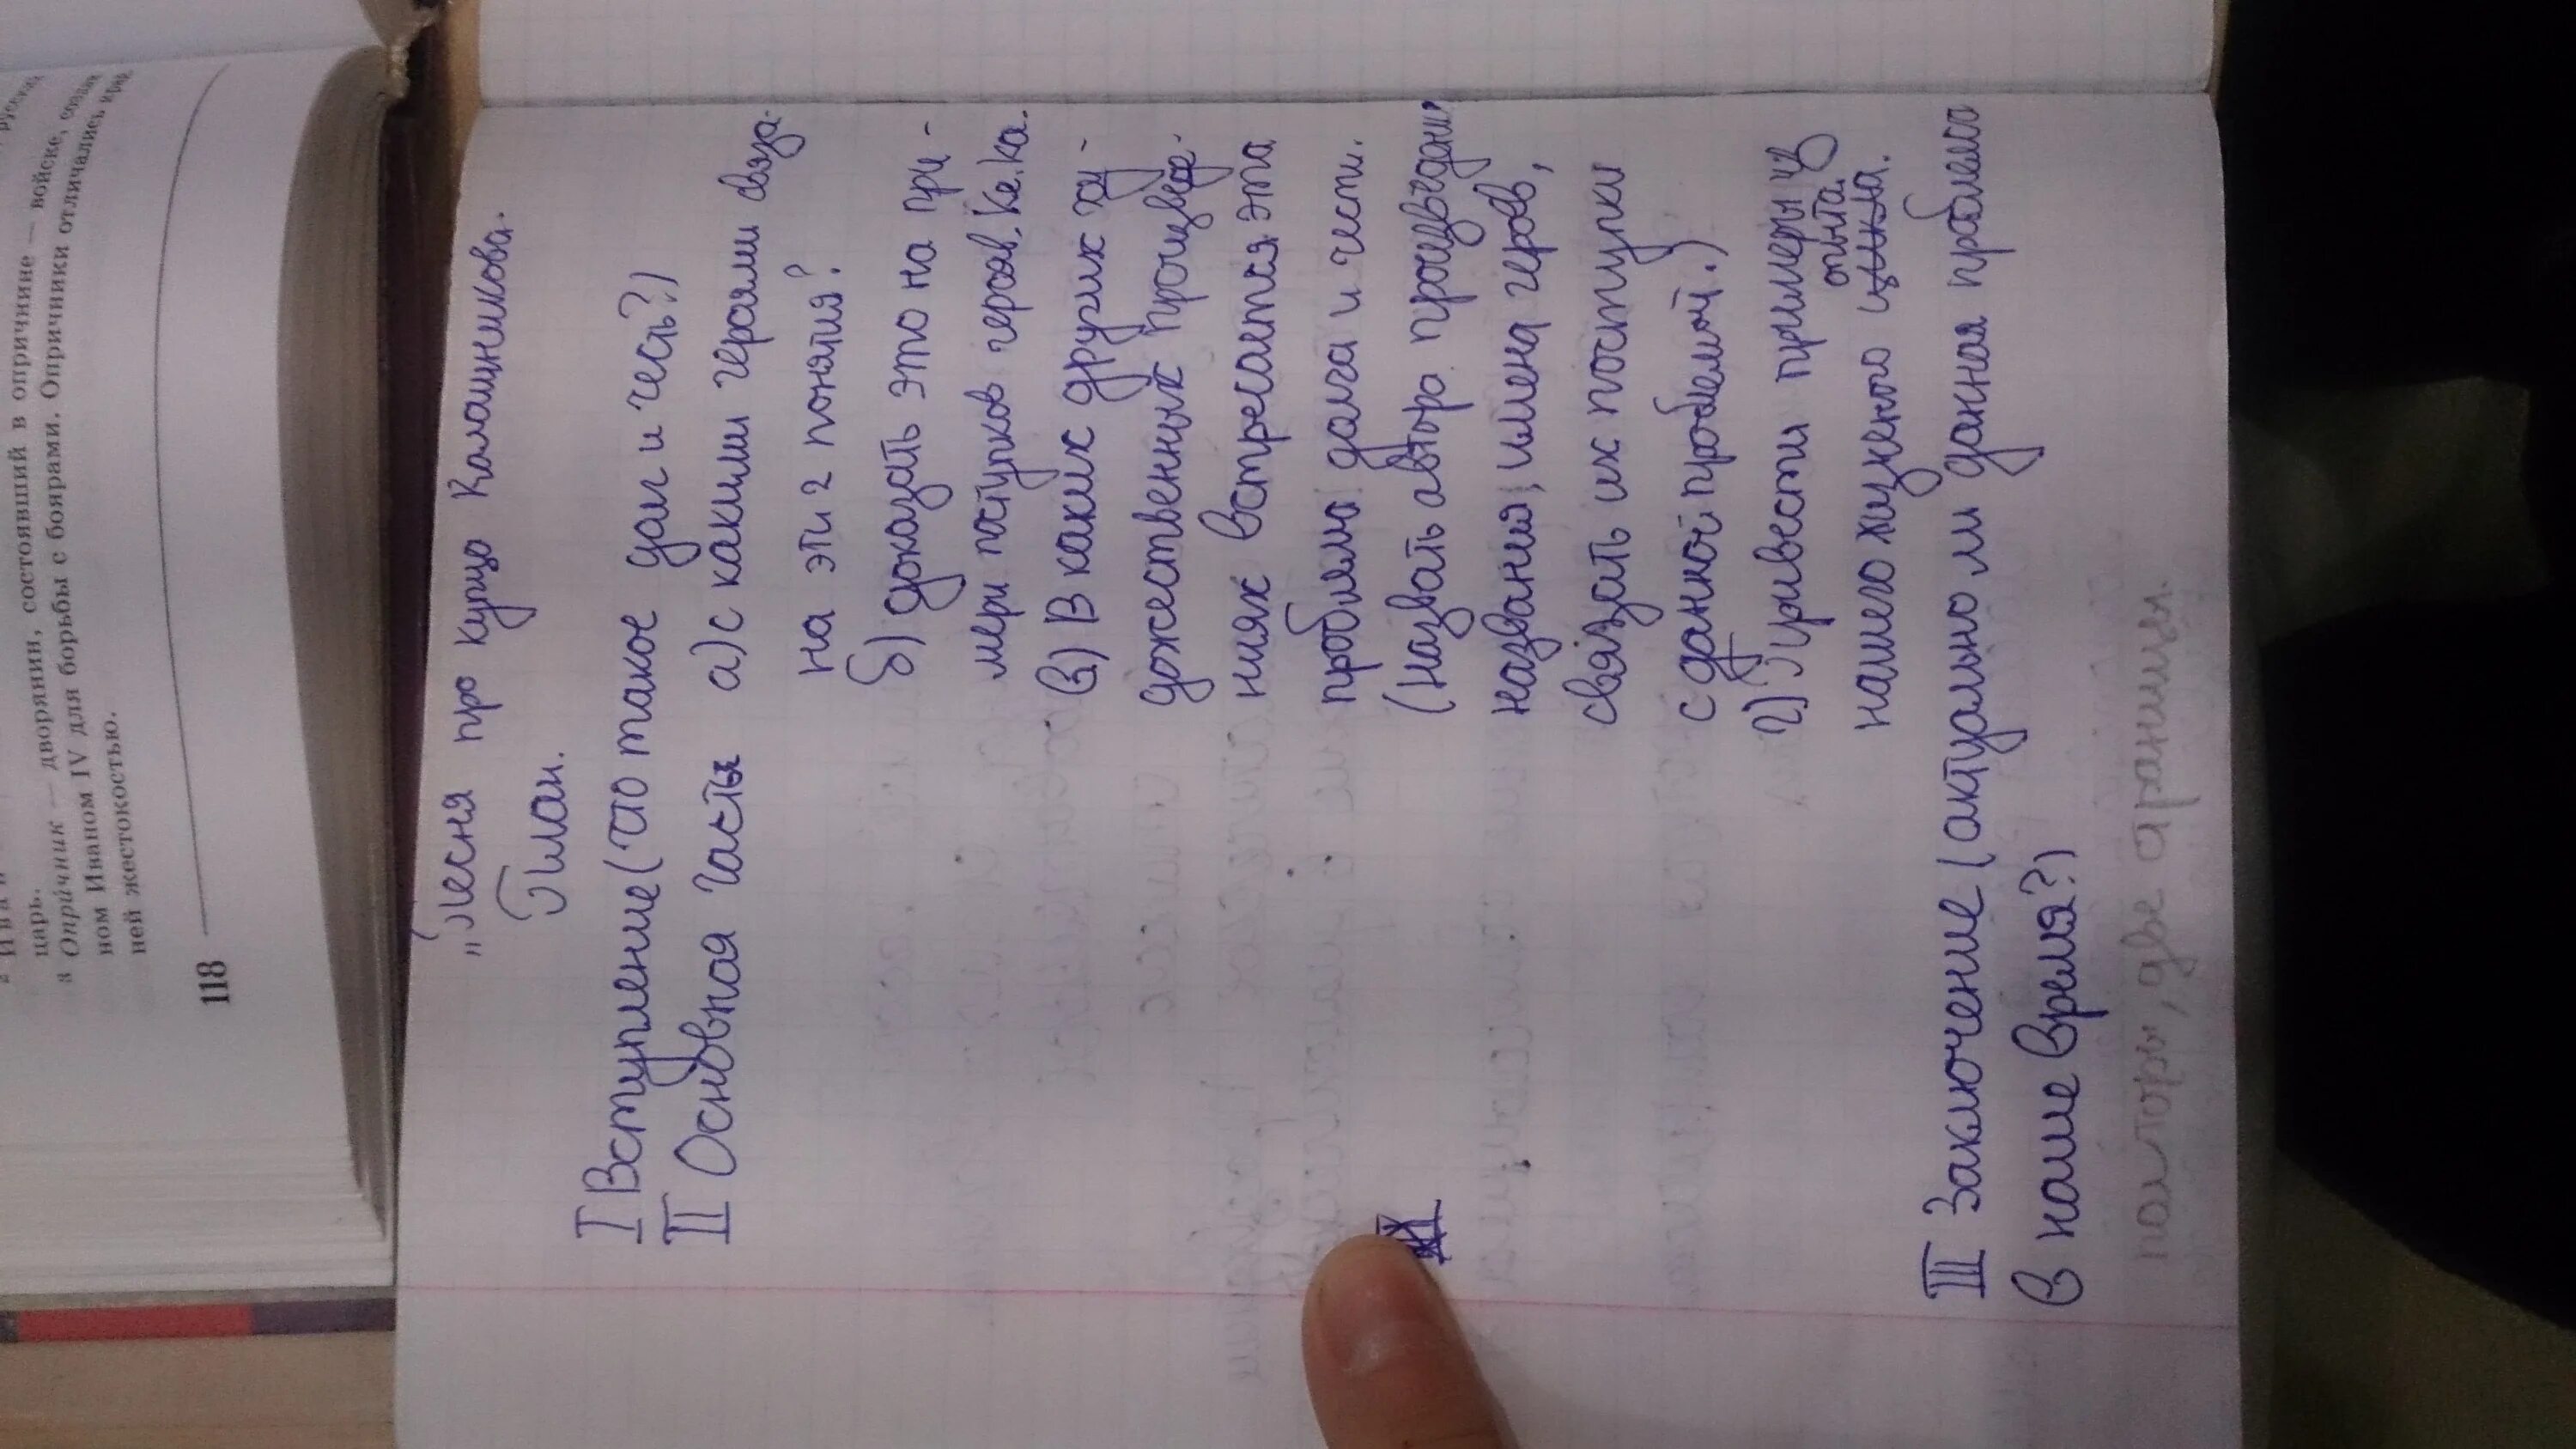 царь.
8 Опричник — дворянин, состоявший в опричнине — войске,
ном Иваном IV для борьбы с боярами. Опричники отличались
ней жестокостью.
118
„Песня про купца Калашникова.
План.
I Вступление (что такое долг и честь?)
II Основная часть а) с какими героями связа-
на эти 2 понятия?
б) доказать это на при-
мери поступков героев. Ке. Ка.
в) В каких других ху-
дожественных произведе-
ниях встречается эта
проблема долга и чести.
(назвать автора произведания
название, имена героев,
связать их поступки
с данной проблемой.)
г) Привести примеры из
опыта.
нашего жизненого цикла.
III Заключение (актуально ли данная проблема
в наше время?)
полторы, две страницы.